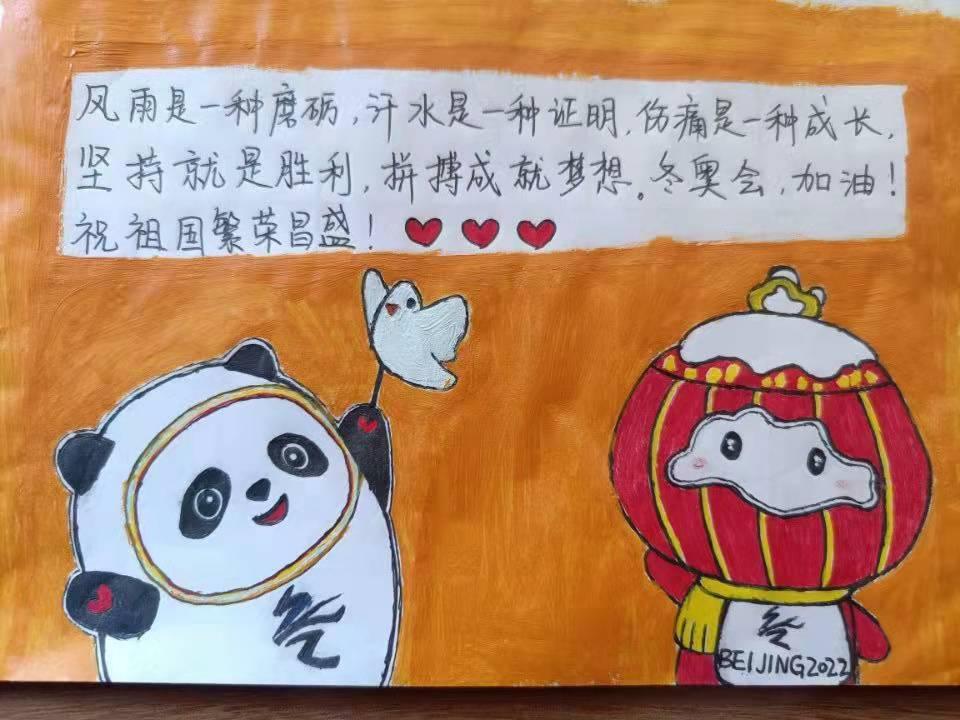 风雨是一种磨砺,汗水是一种证明,伤痛是一种成长,
坚持就是胜利,拼搏成就梦想。冬奥会,加油!
祝祖国繁荣昌盛!
BEIJING2022